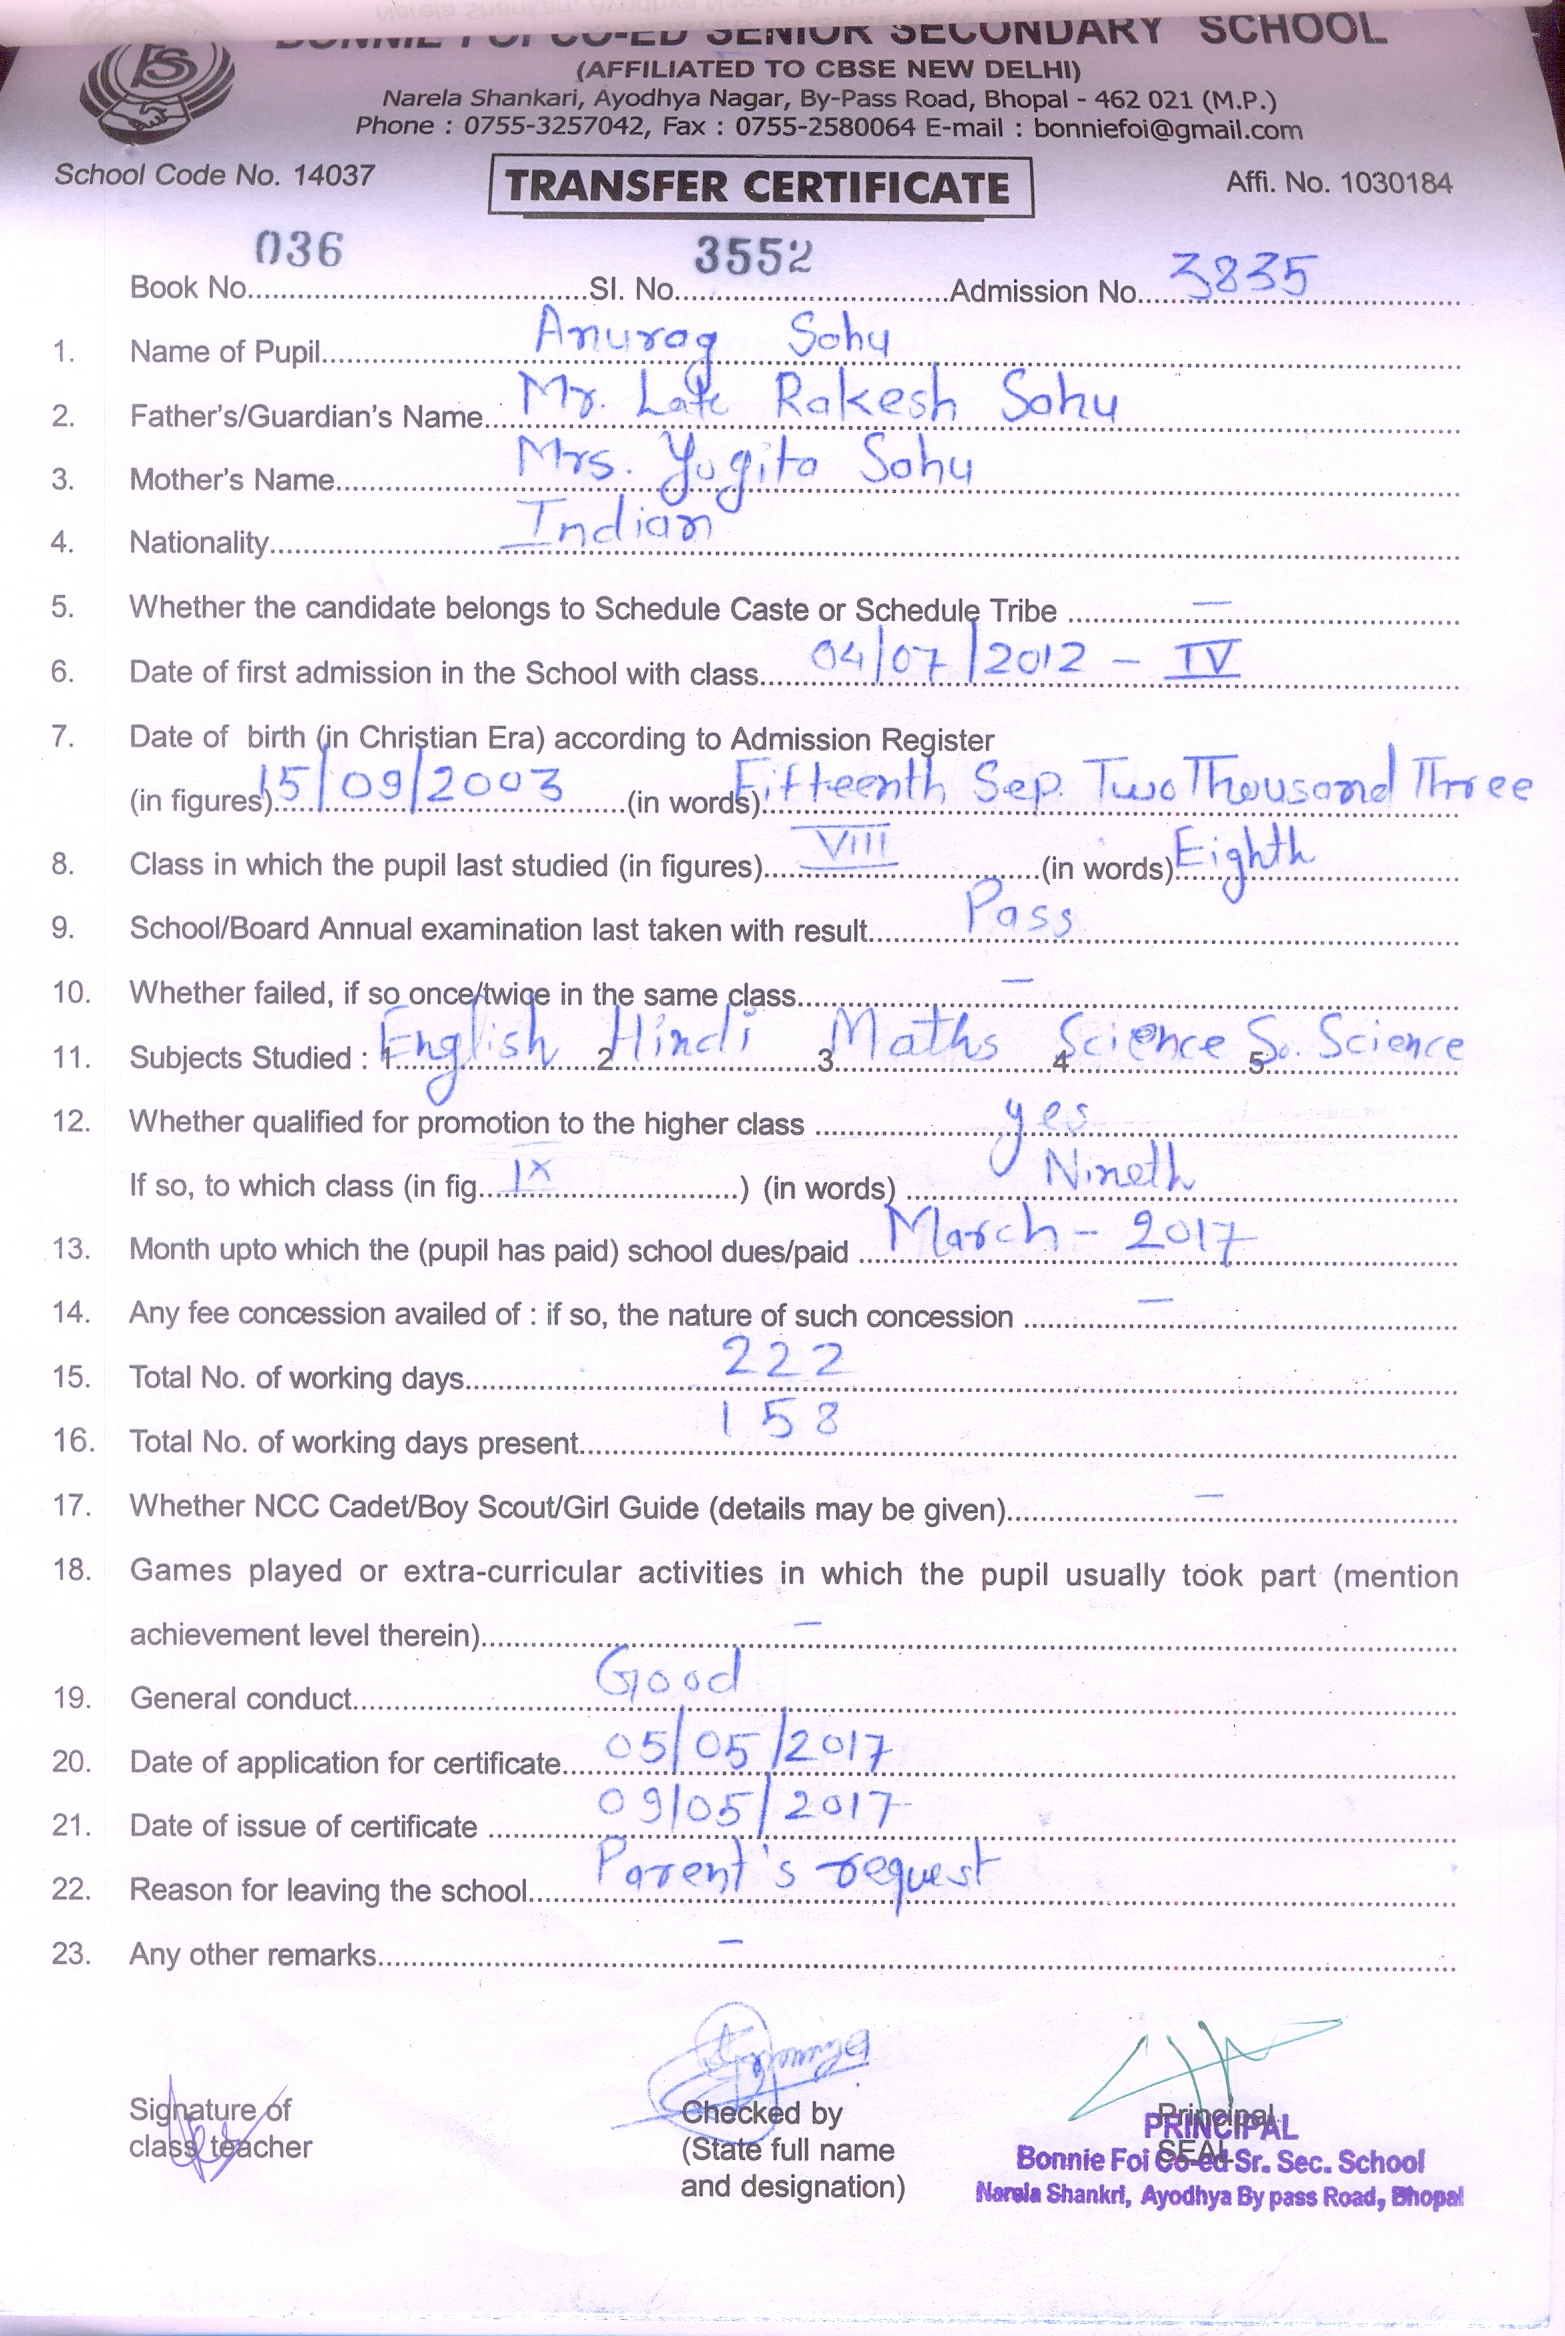 BONNIE FOI CO-ED SENIOR SECONDARY SCHOOL
(AFFILIATED TO CBSE NEW DELHI)
Narela Shankari, Ayodhya Nagar, By-Pass Road, Bhopal - 462 021 (M.P.)
Phone : 0755-3257042, Fax : 0755-2580064 E-mail : bonniefoi@gmail.com
School Code No. 14037 TRANSFER CERTIFICATE Affi. No. 1030184
Book No. 036 Sl. No. 3552 Admission No. 3835
1. Name of Pupil Anurag Sahu
2. Father's/Guardian's Name Mr. Late Rakesh Sahu
3. Mother's Name Mrs. Yogita Sahu
4. Nationality Indian
5. Whether the candidate belongs to Schedule Caste or Schedule Tribe —
6. Date of first admission in the School with class 04/07/2012 - IV
7. Date of birth (in Christian Era) according to Admission Register
(in figures) 15/09/2003 (in words) Fifteenth Sep. Two Thousand Three
8. Class in which the pupil last studied (in figures) VIII (in words) Eighth
9. School/Board Annual examination last taken with result Pass
10. Whether failed, if so once/twice in the same class —
11. Subjects Studied : 1 English 2 Hindi 3 Maths 4 Science 5 So. Science
12. Whether qualified for promotion to the higher class yes
If so, to which class (in fig. IX ) (in words) Nineth
13. Month upto which the (pupil has paid) school dues/paid March - 2017
14. Any fee concession availed of : if so, the nature of such concession —
15. Total No. of working days 222
16. Total No. of working days present 158
17. Whether NCC Cadet/Boy Scout/Girl Guide (details may be given) —
18. Games played or extra-curricular activities in which the pupil usually took part (mention
achievement level therein) —
19. General conduct Good
20. Date of application for certificate 05/05/2017
21. Date of issue of certificate 09/05/2017
22. Reason for leaving the school Parent's request
23. Any other remarks —
Signature of
class teacher
Checked by
(State full name
and designation)
Principal
SEAL
PRINCIPAL
Bonnie Foi Co-ed Sr. Sec. School
Narela Shankri, Ayodhya By pass Road, Bhopal